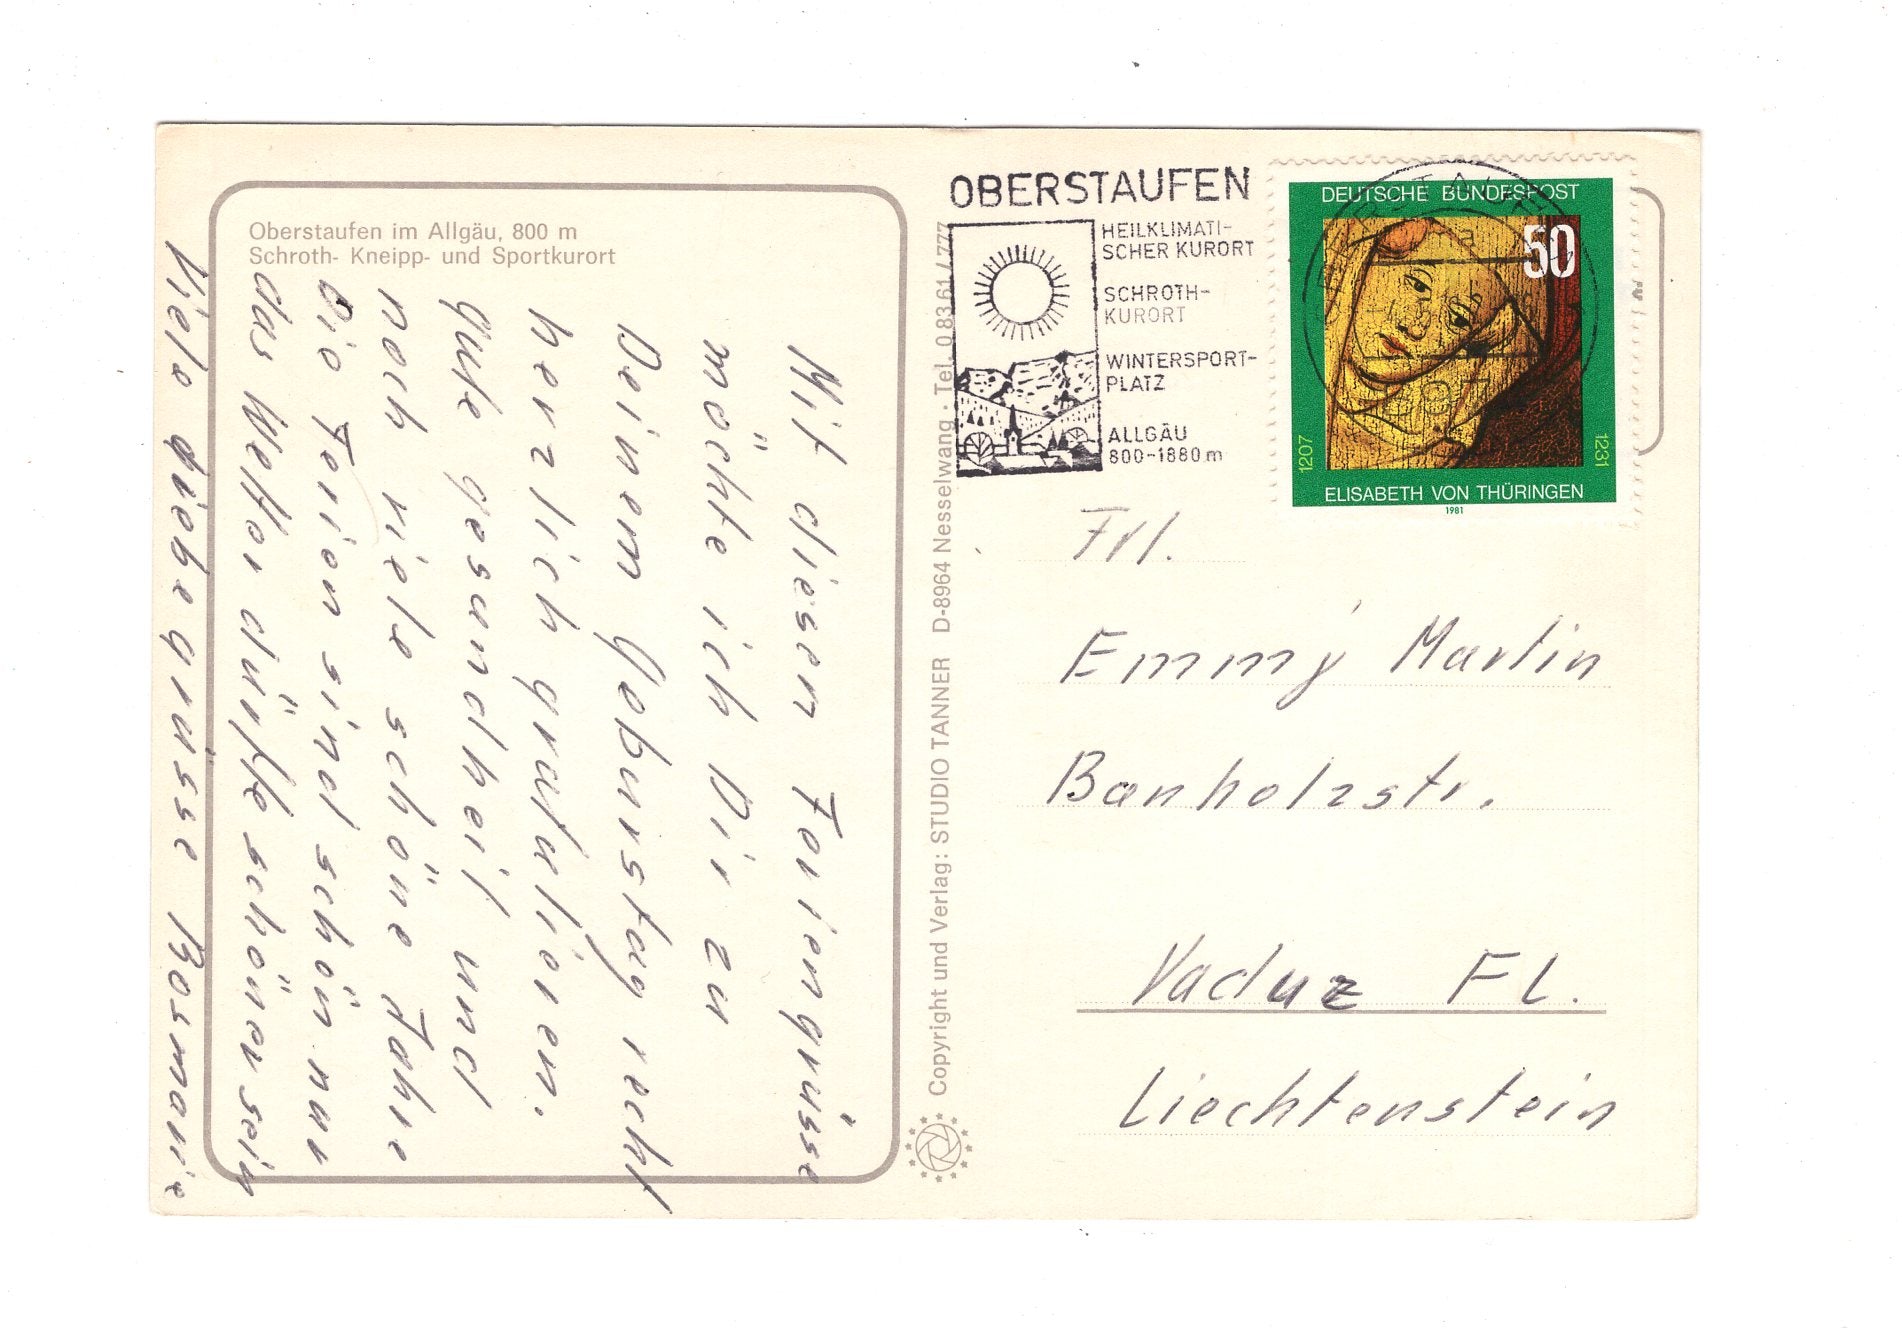 Oberstaufen im Allgäu, 800 m
Schroth- Kneipp- und Sportkurort
Mit diesen Feriengrüsse
möchte ich Dir zu
Deinem Geburstag recht
herzlich gratulieren.
Gute gesundheit und
noch viele schöne Jahre
Die Ferien sind schön nur
das Wetter dürfte schöner sein
Viele liebe grüsse Rosmarie
Copyright und Verlag: STUDIO TANNER D-8964 Nesselwang · Tel. 0 83 61 / 777
OBERSTAUFEN
HEILKLIMATI-
SCHER KURORT
SCHROTH-
KURORT
WINTERSPORT-
PLATZ
ALLGÄU
800-1880 m
DEUTSCHE BUNDESPOST
50
1207
1231
ELISABETH VON THÜRINGEN
1981
Frl.
Emmy Martin
Banholzstr.
Vaduz FL.
Liechtenstein